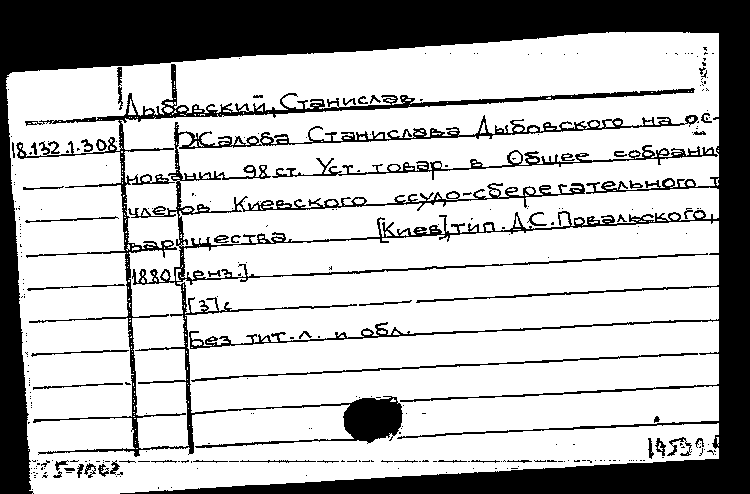 Дыбовский, Станислав.
18.132.1.308 Жалоба Станислава Дыбовского на ос-
новании 98 ст. Уст. товар. в Общее собрани
членов Киевского ссудо-сберегательного т
варищества. [Киев], тип. Д.С. Повальского,
1880 [ценз.].
[3] с
Без тит. л. и обл.